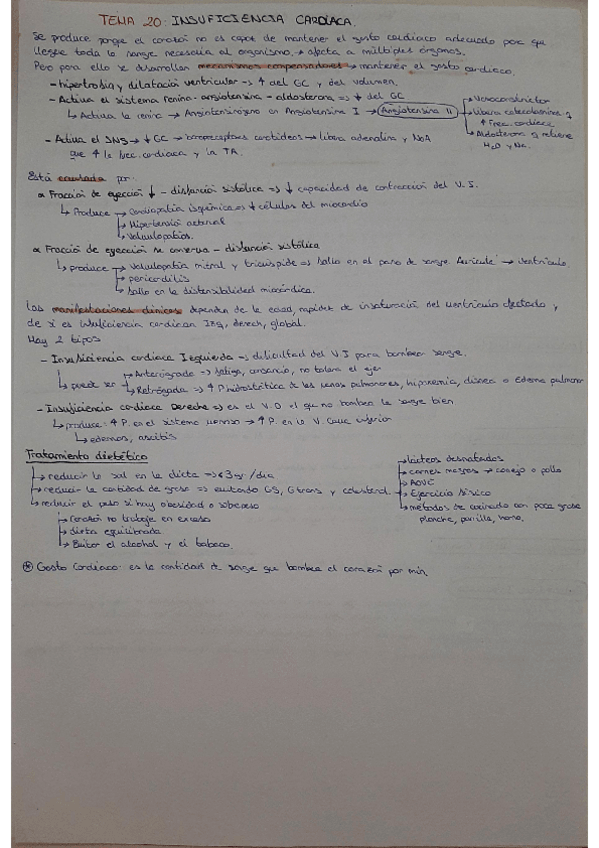 TEMA 20: INSUFICIENCIA CARDÍACA.
Se produce porque el corazón no es capaz de mantener el gasto cardíaco adecuado para que
llegue toda la sangre necesaria al organismo. → afecta a múltiples órganos.
Pero para ello se desarrollan mecanismos compensadores → mantener el gasto cardíaco.
- hipertrofia y dilatación ventricular => ↑ del GC y del volumen.
- Activa el sistema renina-angiotensina-aldosterona => ↓ del GC
↳ Activa la renina → Angiotensinógeno en Angiotensina I → Angiotensina II
→ Vasoconstrictor
→ libera catecolaminas y
↑ frec. cardiaca
→ Aldosterona y retiene
H2O y Na.
- Activa el SNS → ↓ GC → barorreceptores carotídeos → libera adrenalina y NoA
que ↑ la frec. cardiaca y la TA.
Está causada por:
α Fracción de eyección ↓ - disfunción sistólica => ↓ capacidad de contracción del V.I.
↳ Produce → Cardiopatía isquémica => ↓ células del miocardio
→ Hipertensión arterial
→ Valvulopatías.
α Fracción de eyección se conserva - disfunción sistólica
↳ produce → Valvulopatía mitral y tricúspide => fallo en el paso de sangre Aurícula → ventrículo.
→ pericarditis
→ fallo en la distensibilidad miocárdica.
Las manifestaciones clínicas dependen de la edad, rapidez de instauración del ventrículo afectado y
de si es insuficiencia cardiaca Izq, derech, global.
Hay 2 tipos
- Insuficiencia cardiaca Izquierda → dificultad del V.I para bombear sangre.
↳ puede ser → Anterógrada → fatiga, cansancio, no tolera el ejer
→ Retrógrada → ↑ P hidrostática de las venas pulmonares, hipoxemia, disnea o Edema pulmonar
- Insuficiencia cardiaca Derecha => es el V.D el que no bombea la sangre bien
↳ produce: ↑ P. en el sistema venoso → ↑ P. en la V. Cava inferior
↳ edemas, ascitis
Tratamiento dietético
→ reducir la sal en la dieta => <3 gr/dia
→ reducir la cantidad de grasa => evitando GS, G trans y colesterol.
→ lácteos desnatados
→ carnes magras → conejo o pollo
→ AOVE
→ Ejercicio físico
→ métodos de cocinado con poca grasa
plancha, parrilla, horno.
→ reducir el peso si hay obesidad o sobrepeso
→ Corazón no trabaje en exceso
→ dieta equilibrada
→ Evitar el alcohol y el tabaco.
* Gasto Cardiaco: es la cantidad de sangre que bombea el corazón por min.